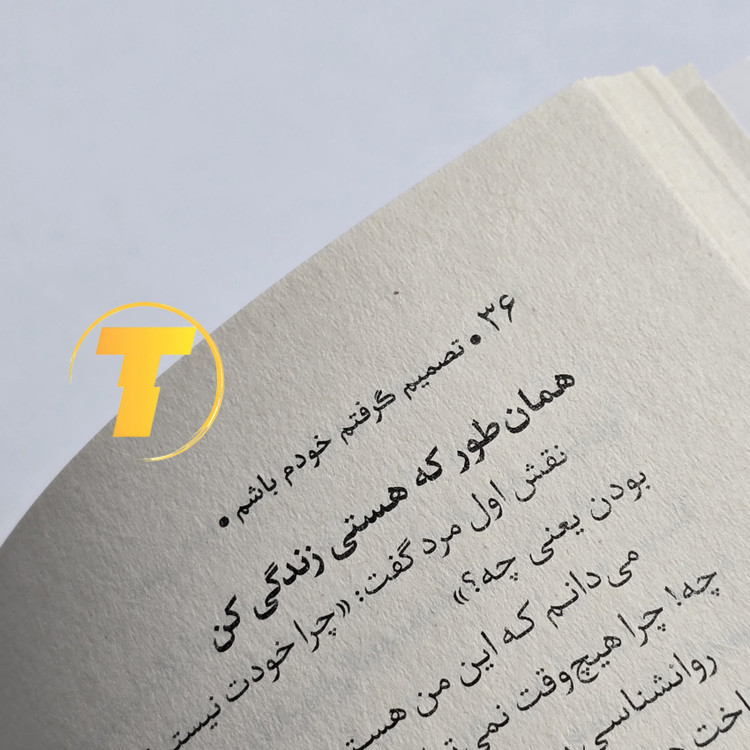 T
۳۶ • تصمیم گرفتم خودم باشم •
همان‌طور که هستی زندگی کن
نقش اول مرد گفت: «چرا خودت نیستی
بودن یعنی چه؟»
می‌دانم که این من هستم
چه! چرا هیچ‌وقت نمی‌
روانشناسی